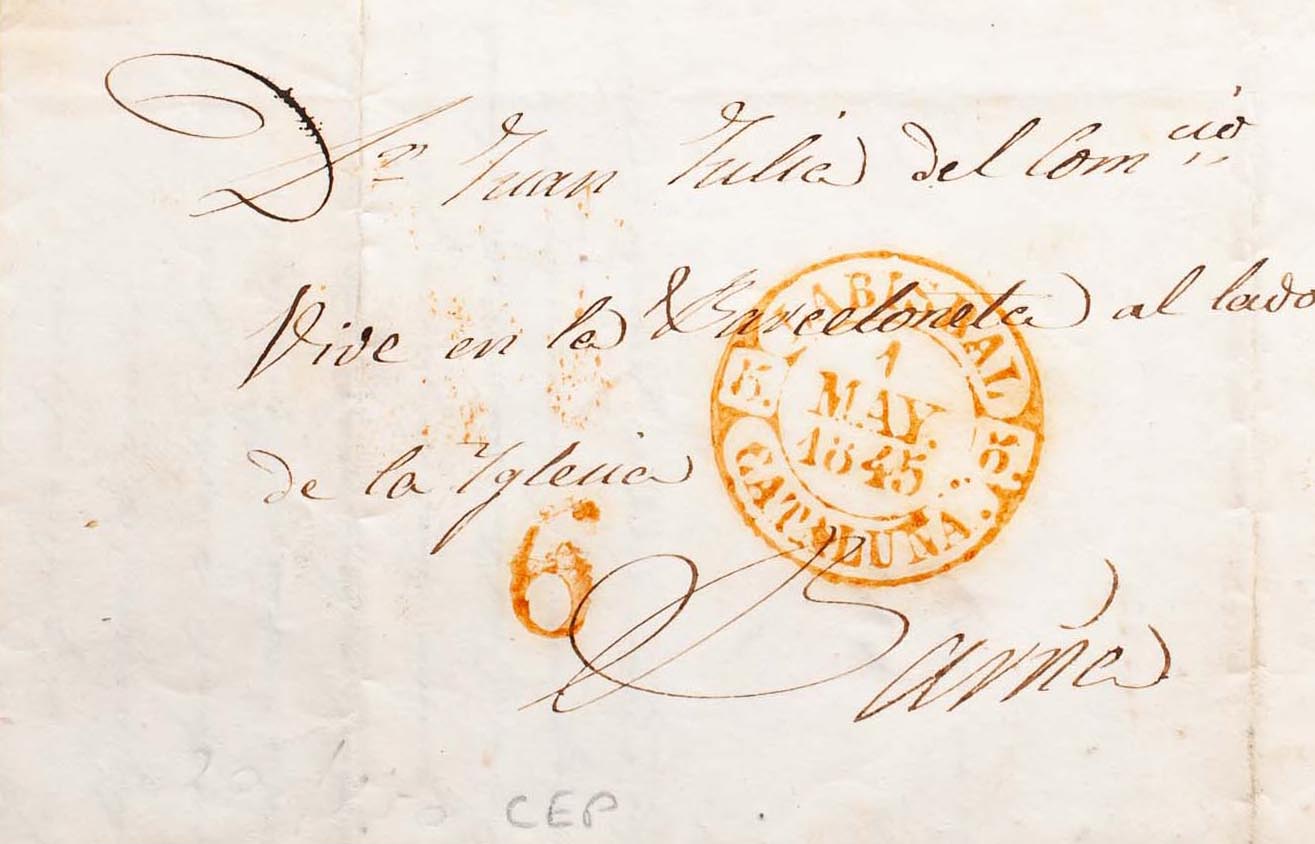 Dn Juan Julia del Comcio
Vive en la Barceloneta al lado
de la Yglesia
Barña
6
LABISBAL
1
MAY.
1845
CATALUNA.
CEP